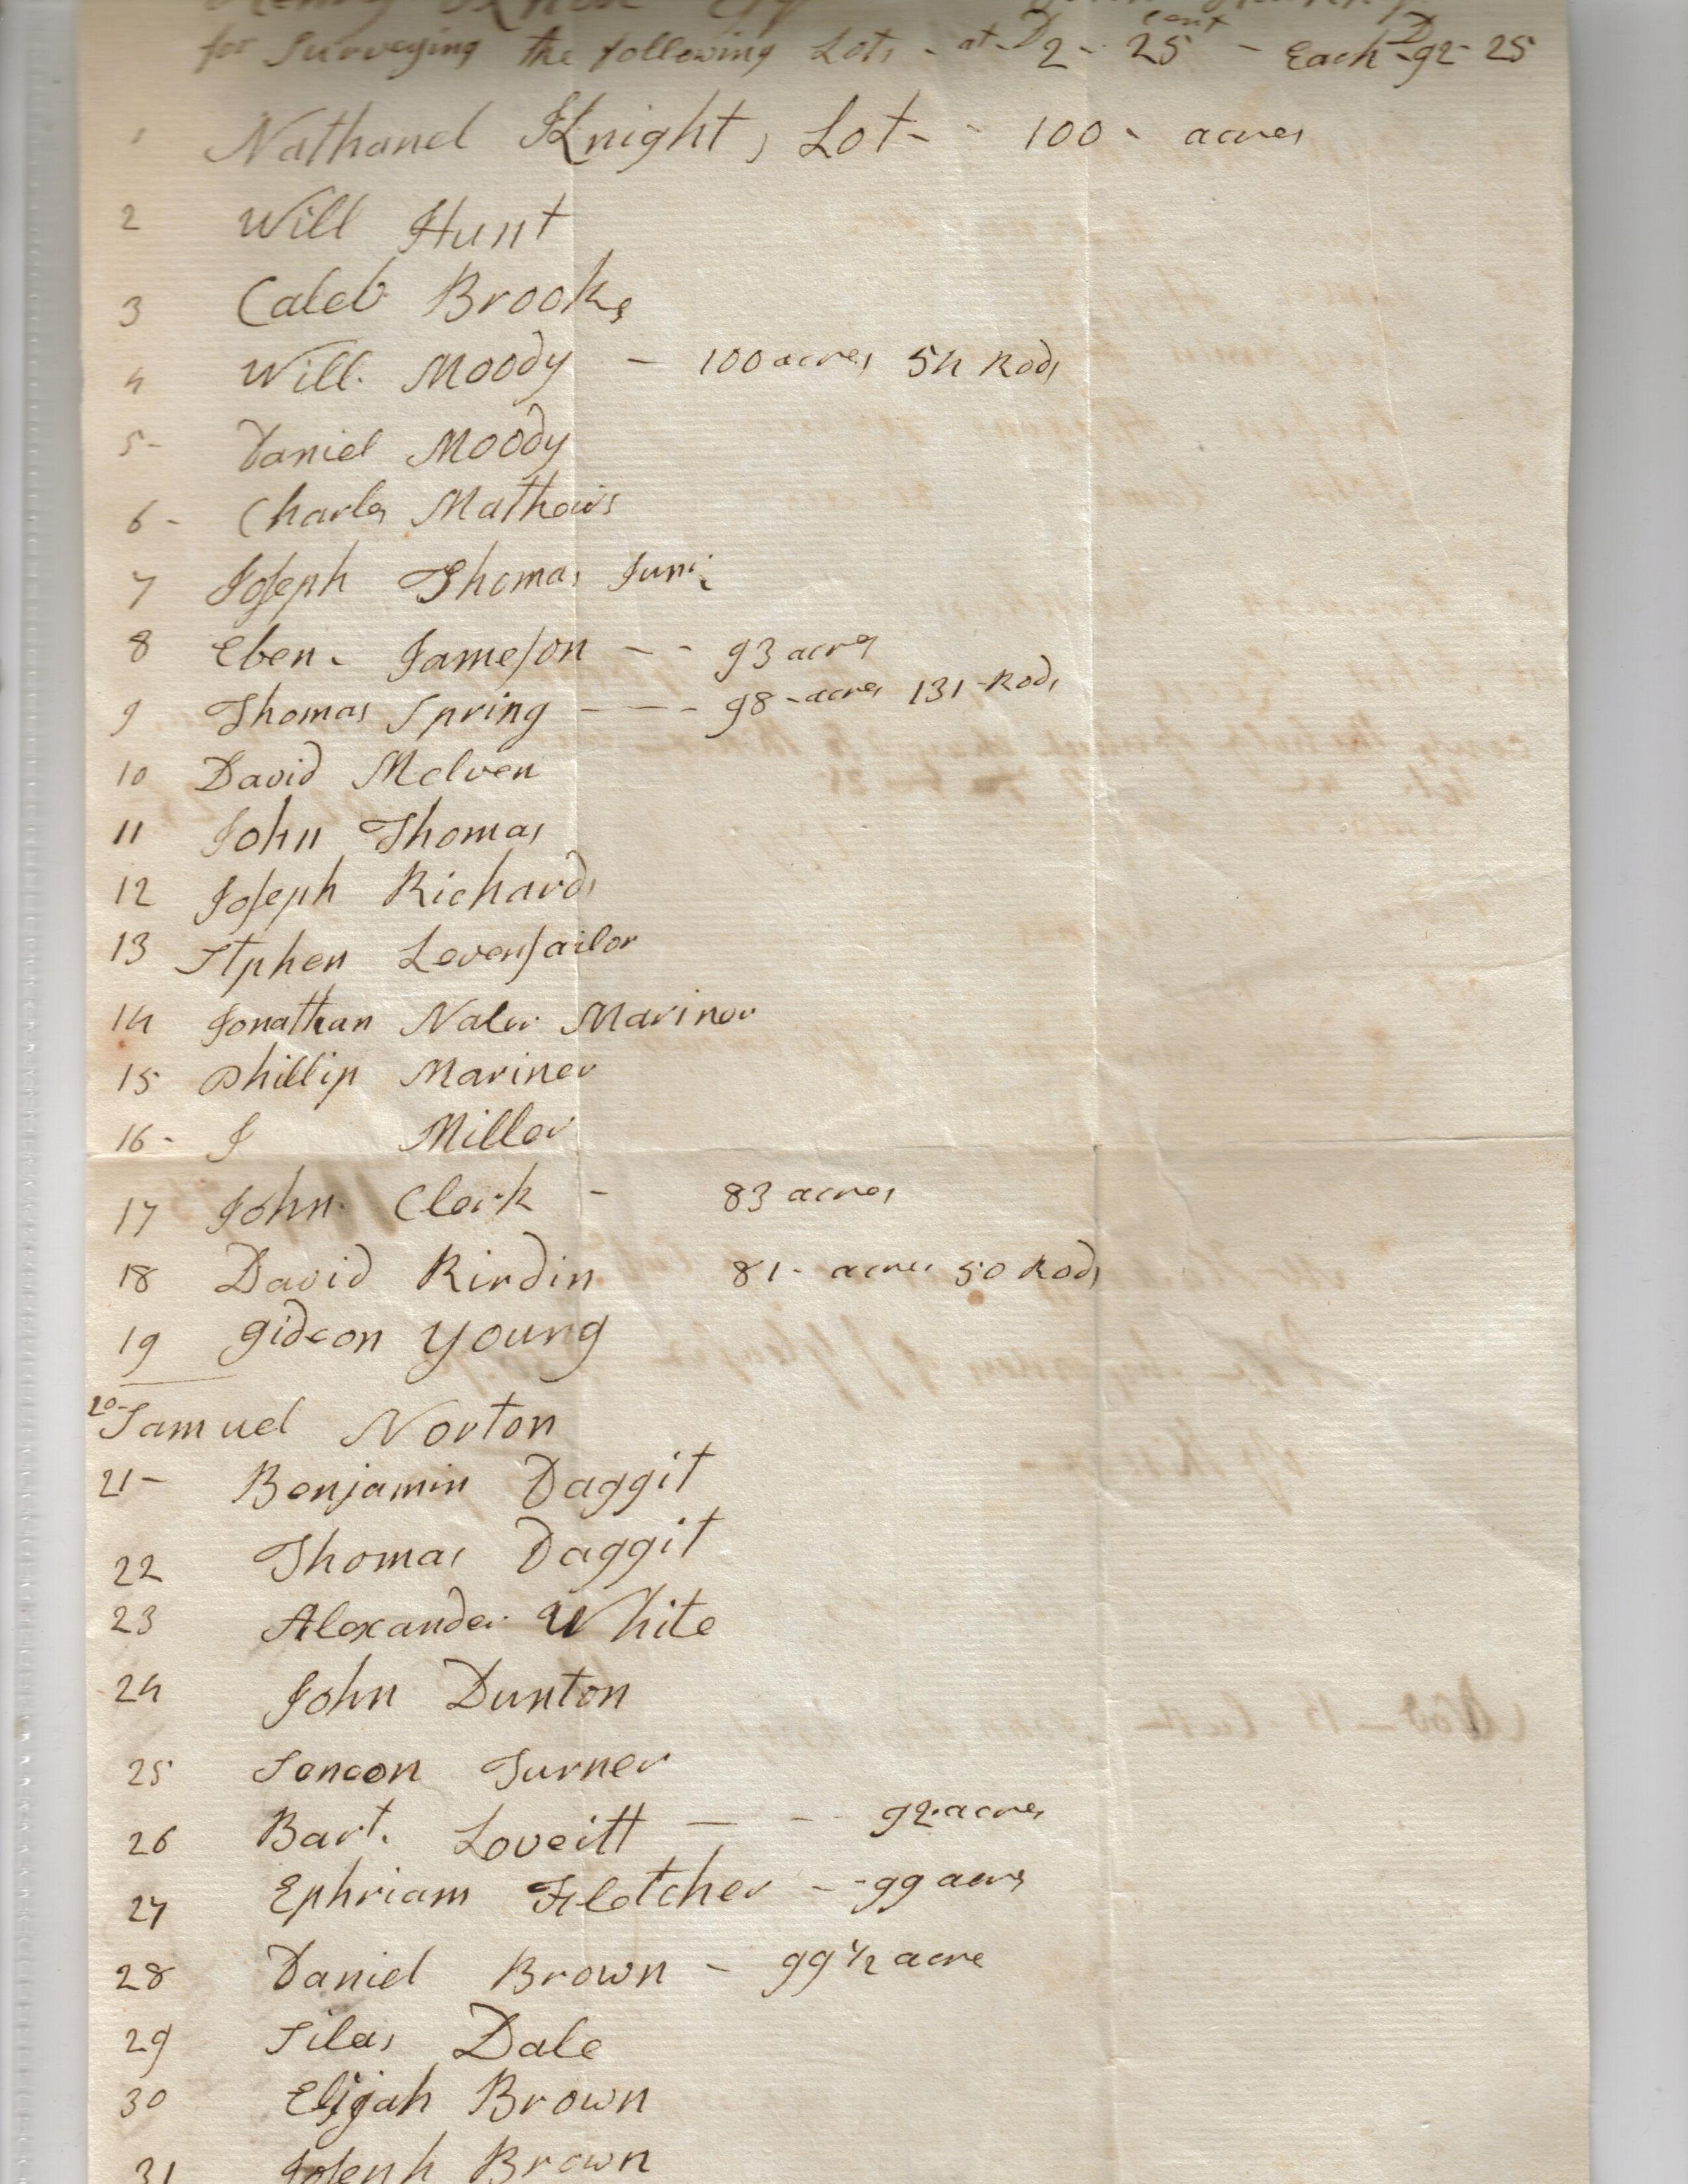 Henry Knox
for Surveying the following Lots - at D 2 - 25 cent - Each - D 92 - 25
1 Nathanel Knight, Lot - - 100 - acres
2 Will Hunt
3 Caleb Brooks
4 Will. Moody - 100 acres 54 Rods
5 - Daniel Moody
6 - Charles Mathews
7 Joseph Thomas Juni
8 Eben. Jameson - - 93 acres
9 Thomas Spring - - - 98 - acres 131 - Rods
10 David Melven
11 John Thomas
12 Joseph Richards
13 Stphen Levensailor
14 Jonathan Mariner
15 Phillip Mariner
16 - J Miller
17 John Clerk - 83 acres
18 David Kirdin 81 - acres 50 Rods
19 Gideon Young
20 - Samuel Norton
21 - Benjamin Daggit
22 Thomas Daggit
23 Alexander White
24 John Dunton
25 Turner
26 Bart. Loveitt - - 92 acres
27 Ephriam Fletcher - - 99 acrs
28 Daniel Brown - 99 1/2 acre
29 Silas Dale
30 Elijah Brown
31 Joseph Brown